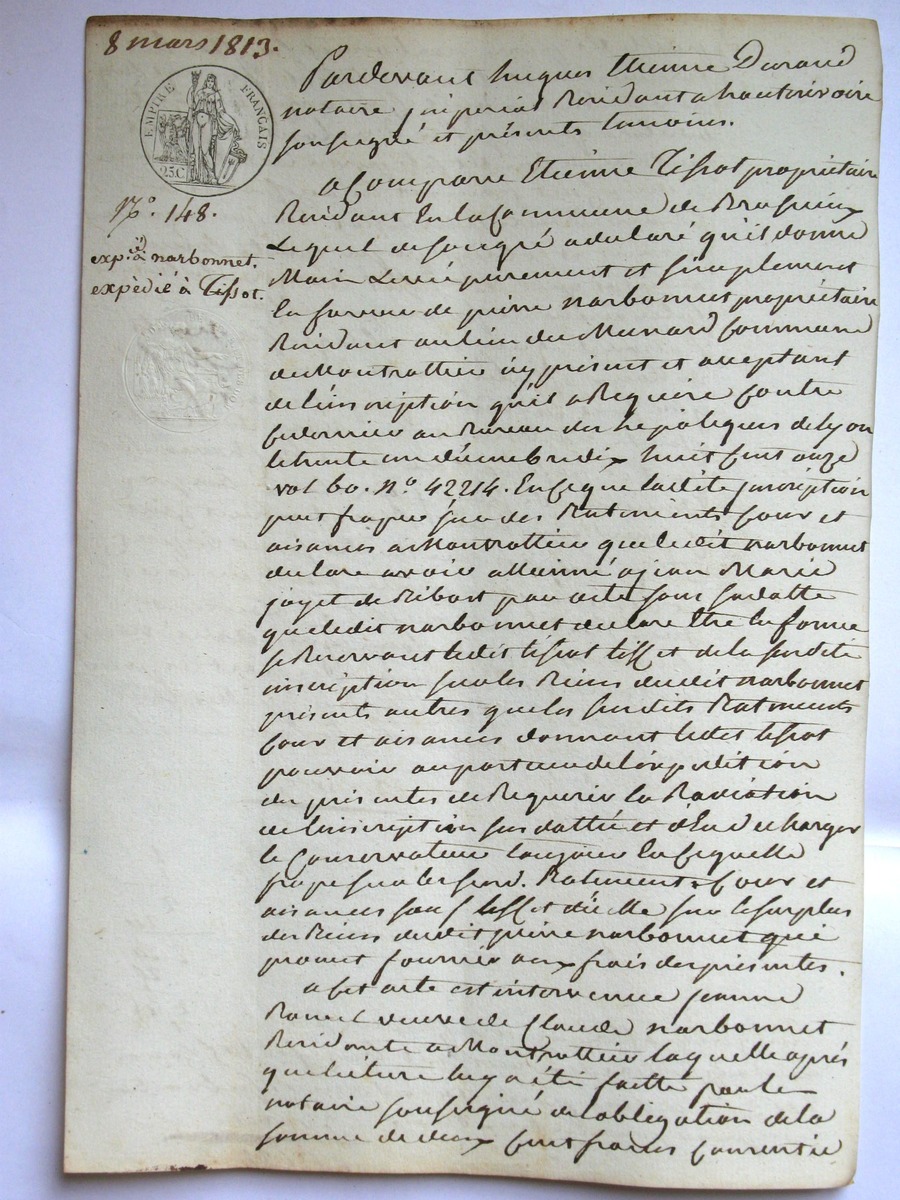 8 mars 1813.
EMPIRE FRANÇAIS
25C
N.° 148.
exp.é à narbonnet.
expèdié à Tissot.
Pardevant hugues Etienne Durand
notaire imperial Residant a hauterivoire
soussigné et présents temoins.
a Comparu Etienne Tissot propriétaire
Residant En la Commune de Brussieux
Lequel de son gré a declaré qu'il donne
Main Levée purement et simplement
En faveur de pierre narbonnet propriétaire
Residant au lieu du Commune
de Montrottier icy présent et acceptant
de l'inscription qu'il a Requise Contre
Ce dernier au Bureau des hepoteques de lyon
le trente un décembre dix huit Cent onze
vol 60. n.° 42214. En Ce que ladite inscription
peut fraper sur des Batiments Cour et
aisances a Montrottier que ledit narbonnet
declare avoir allienné a jean Marie
de Ribost par acte sous sa datte
que ledit narbonnet declare Etre En forme
se Reservant ledit tissot l'effet de la susdite
inscription sur les Biens dudit narbonnet
présents autres que les susdits Batiments
Cour et aisances donnant ledit tissot
pouvoir au porteur de l'expedition
des présentes de Requerir la Radiation
de l'inscription sus dattée et d'En decharger
le Conservateur toujours En Ce quelle
frape sur les susd. Batiments Cour et
aisances sauf l'effet d'icelle sur le surplus
des Biens dudit pierre narbonnet qui
promet fournir aux frais des présentes.
a Cet acte est intervenue jeanne
veuve de Claude narbonnet
Residante a Montrottier laquelle après
que lecture luy a été faitte par le
notaire soussigné de l'obligation de la
somme de deux Cent francs